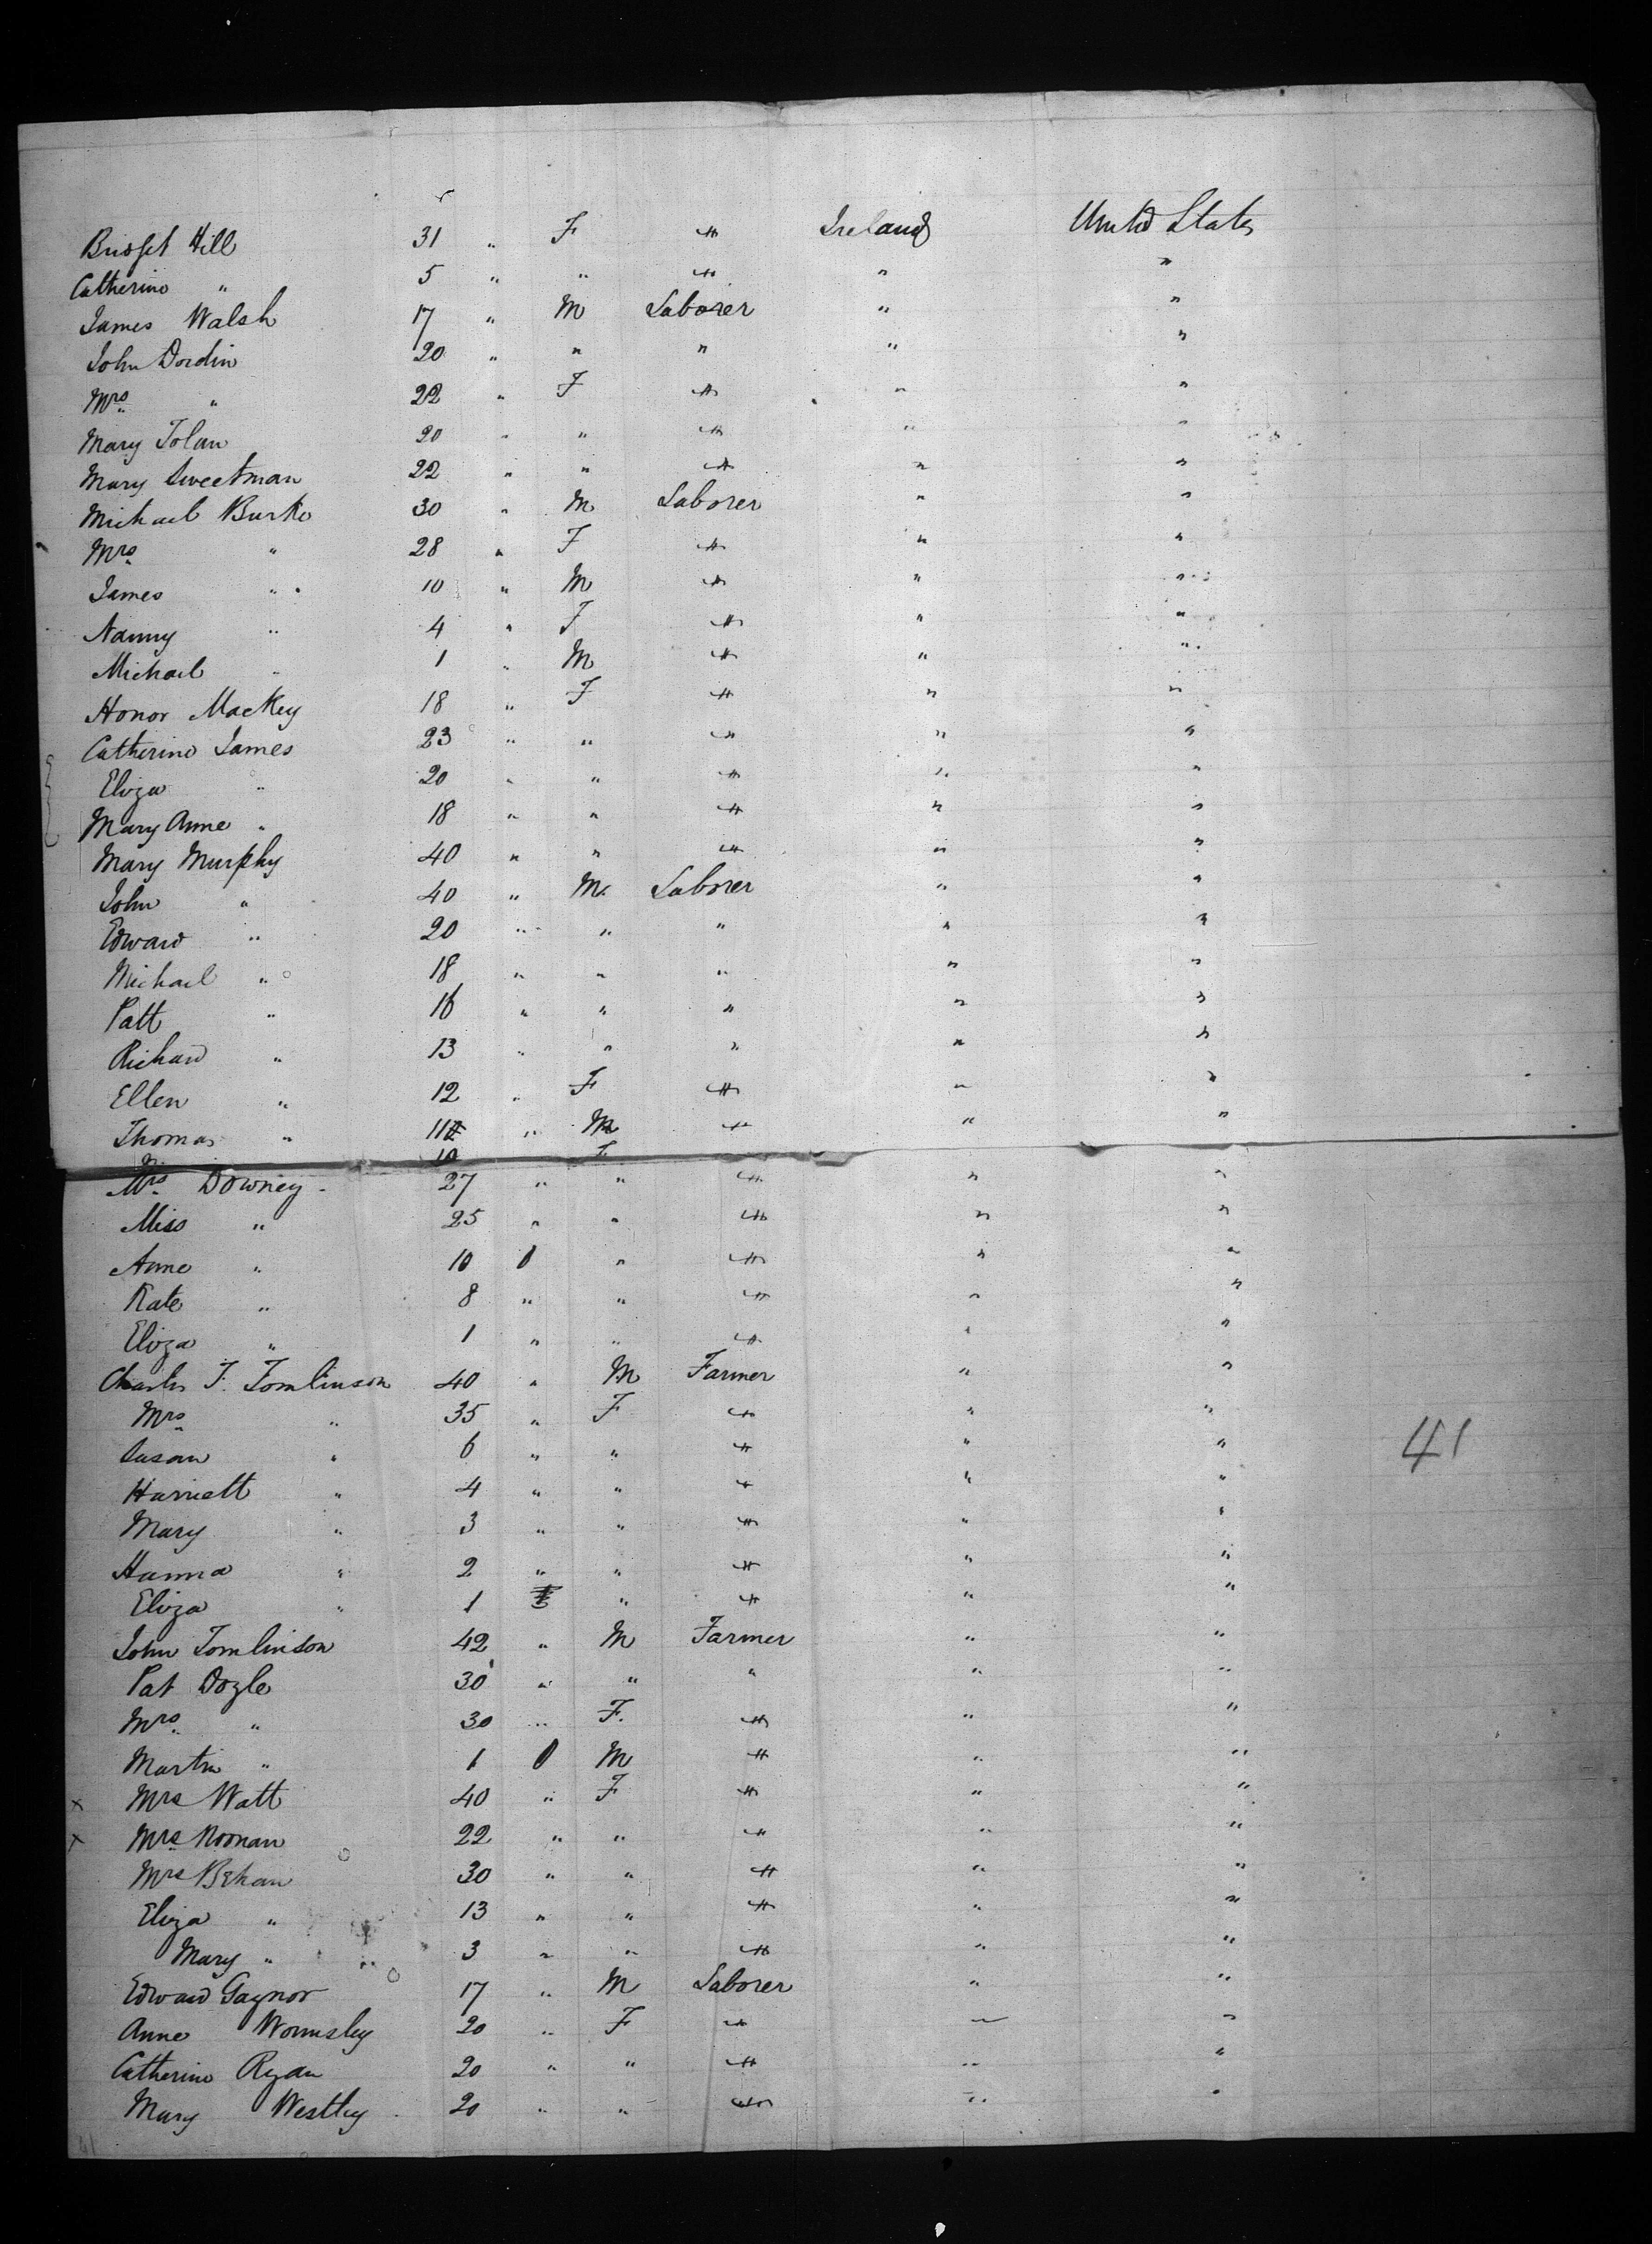 Bridget Hill 31 " F " Ireland United States
Catherine " 5 " " " " "
James Walsh 17 " M Laborer " "
John Dordin 20 " " " " "
Mrs " 22 " F " " "
Mary Tolan 20 " " " " "
Mary Sweetman 22 " " " " "
Michael Burke 30 " M Laborer " "
Mrs " 28 " F " " "
James " 10 " M " " "
Nanny " 4 " F " " "
Michael " 1 " M " " "
Honor Mackey 18 " F " " "
Catherine James 23 " " " " "
Eliza " 20 " " " " "
Mary Anne " 18 " " " " "
Mary Murphy 40 " " " " "
John " 40 " M. Laborer " "
Edward " 20 " " " " "
Michael " 18 " " " " "
Patt " 16 " " " " "
Richard " 13 " " " " "
Ellen " 12 " F " " "
Thomas " 11 " M " " "
10 F
Mrs Downey 27 " " " " "
Miss " 25 " " " " "
Anne " 10 " " " "
Kate " 8 " " " " "
Eliza " 1 " " " " "
Charles T. Tomlinson 40 " M Farmer " "
Mrs " 35 " F " " "
Susan " 6 " " " " "
Harriett " 4 " " " " "
Mary " 3 " " " " "
Hanna " 2 " " " " "
Eliza " 1 " " " "
John Tomlinson 42 " M Farmer " "
Pat Doyle 30 " " " " "
Mrs " 30 " F. " " "
Martin " 1 M " " "
x Mrs Watt 40 " F " " "
x Mrs Noonan 22 " " " " "
Mrs Behan 30 " " " " "
Eliza " 13 " " " " "
Mary " 3 " " " " "
Edward Gaynor 17 " M Laborer " "
Anne Wormsley 20 " F " " "
Catherine Ryan 20 " " " " "
Mary Westley 20 " " " " "
41
41